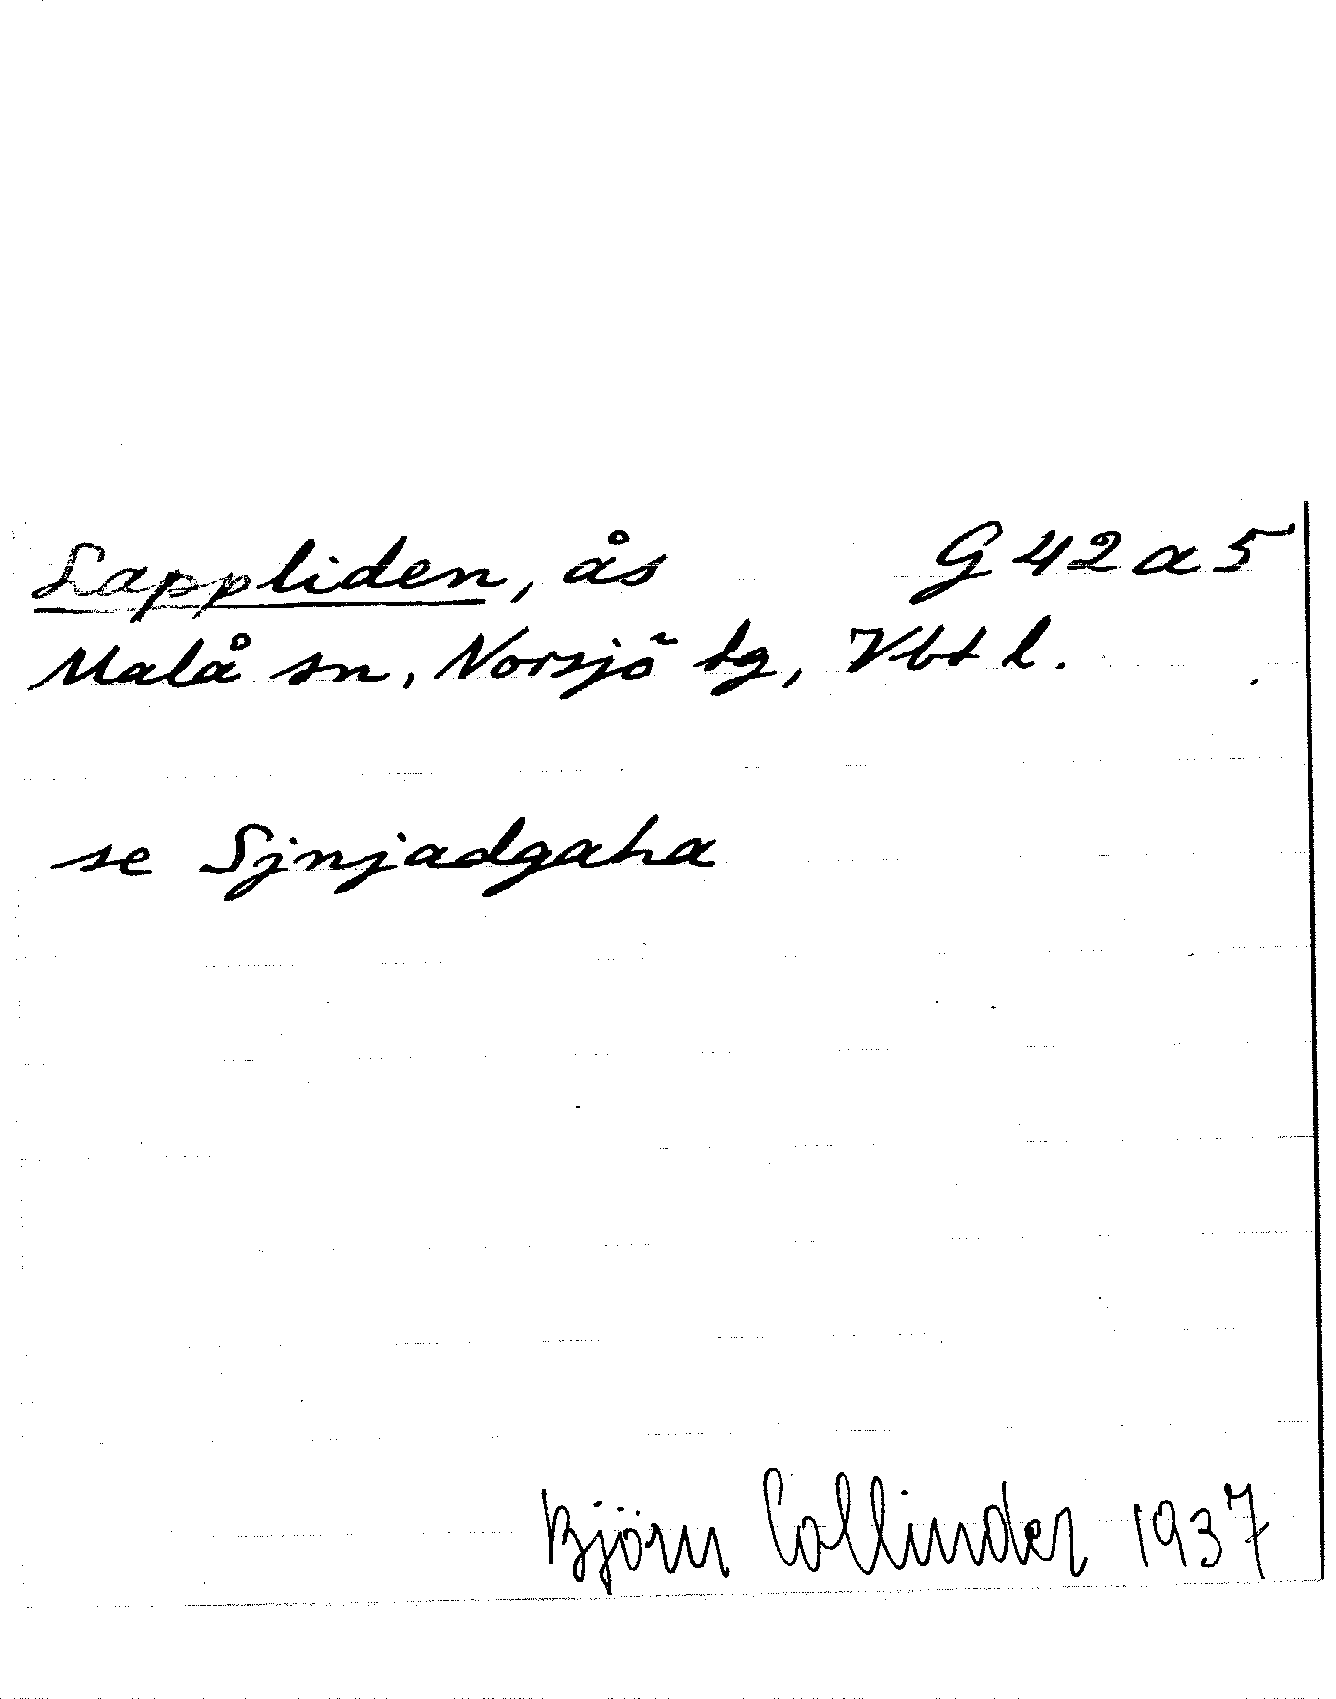 Lappliden, ås G 42 a 5
Malå sn, Norsjö tg, Vbt l.
se Sjnjadgaha
Björn Collinder 1937